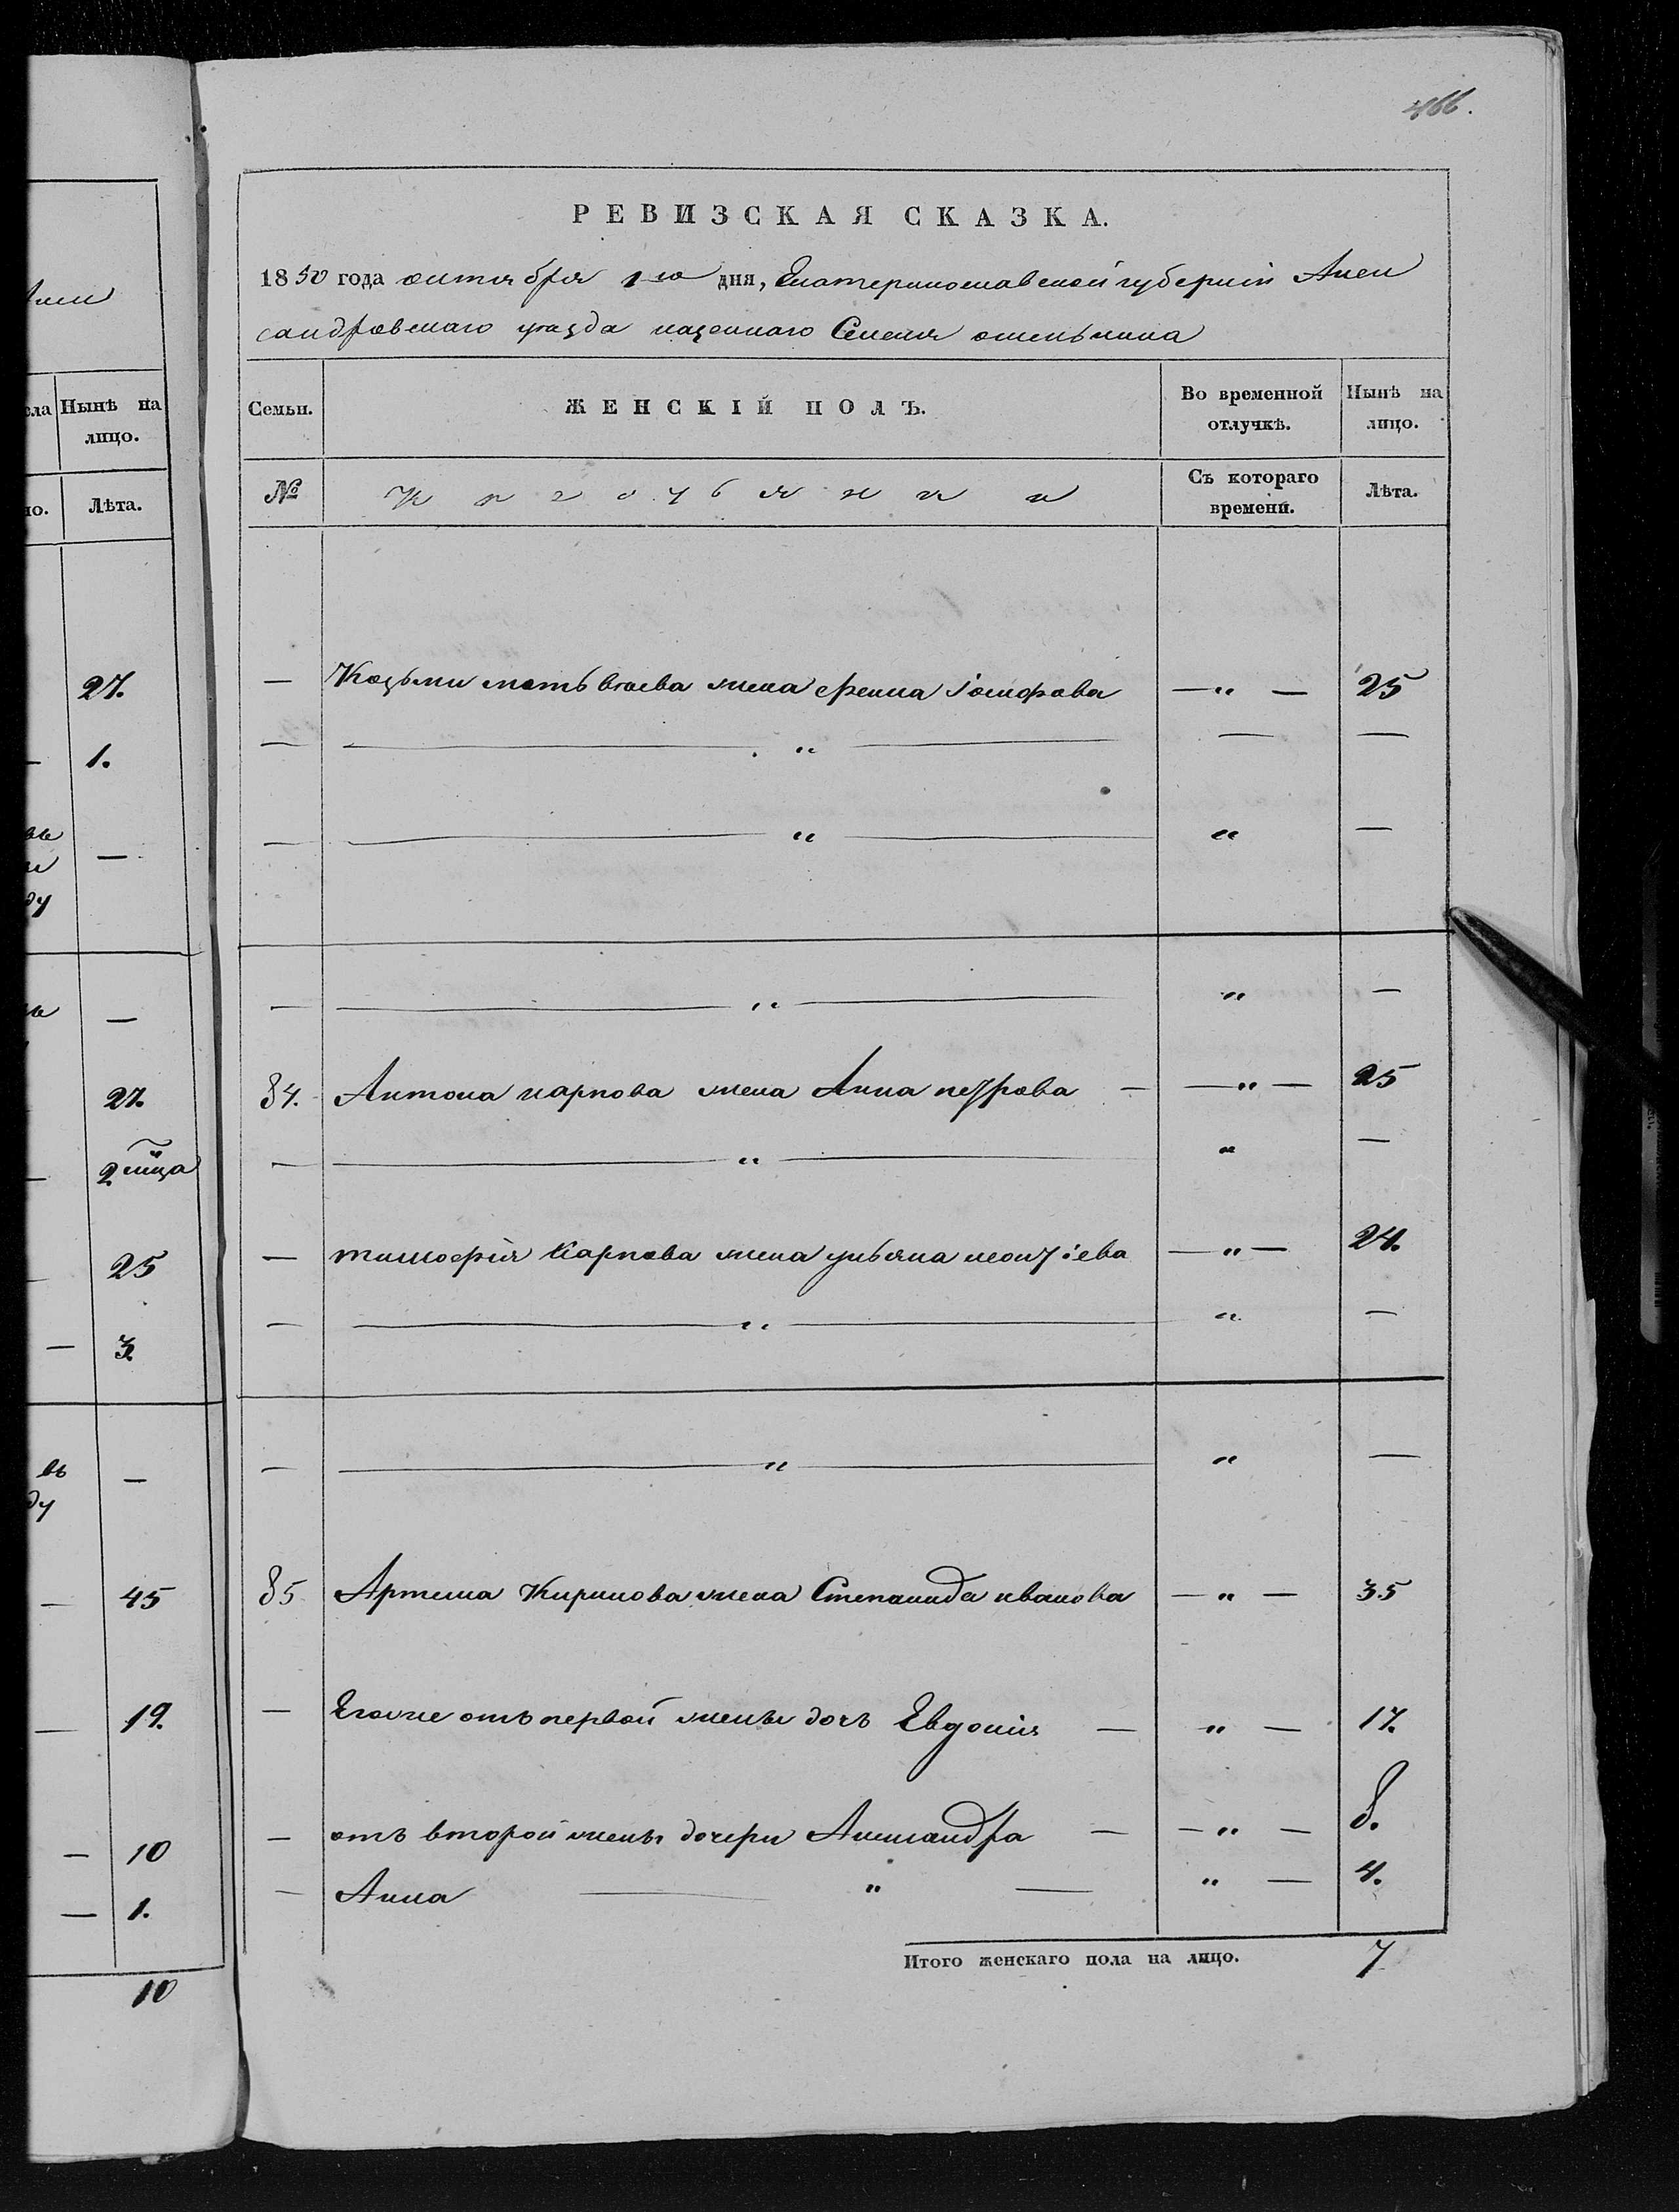 466.
РЕВИЗСКАЯ СКАЗКА.
1850 года октября 1го дня, Екатеринославской губернiи Алек
сандровскаго уѣзда казеннаго Селенiя
Семьи. ЖЕНСКIЙ ПОЛЪ. Во временной отлучкѣ. Нынѣ на лицо.
№ Съ котораго времени. Лѣта.
— Козьми матьвѣева жена —„— 25
— „ — —
— „ „ —
— „ „ —
84. Антона карпова жена Анна петрова — —„— 25
— „ „ —
— тимофѣя Карпова жена ульяна леонтiева —„— 24.
— „ „ —
— „ „ —
85 Артема Кирилова жена Степанида иванова —„— 35
— Егоже отъ первой жены дочь Евдокiя — „ — 17.
— отъ второй жены дочери Александра — —„— 8.
— Анна — „ — „ — 4.
Итого женскаго пола на лицо. 7
Нынѣ на
лицо.
Лѣта.
27.
1.
—
—
27.
2
25
3.
—
45
19.
10
1.
10